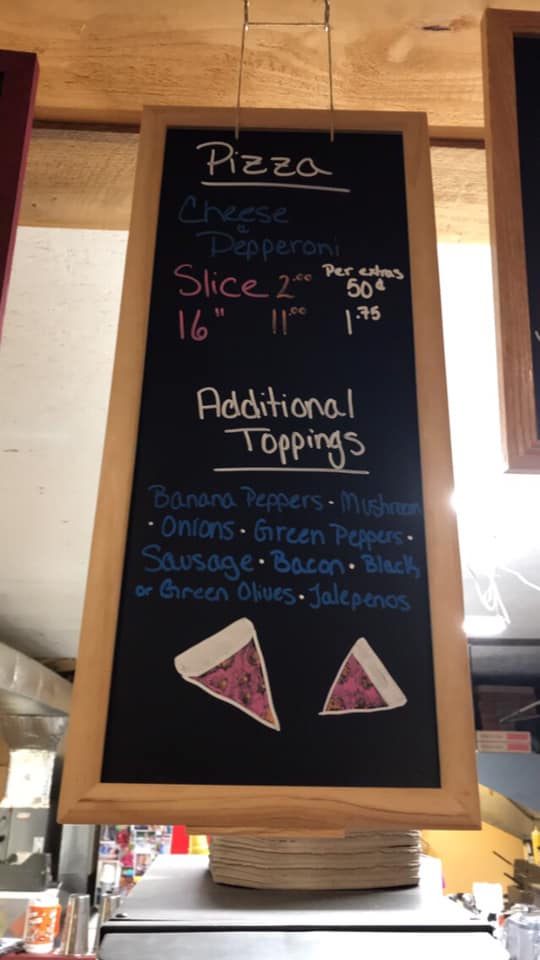 Pizza
Cheese
& Pepperoni
Per extras
Slice 2.00 50¢
16" 11.00 1.75
Additional
Toppings
Banana Peppers · Mushroom
· Onions · Green Peppers ·
Sausage · Bacon · Black
or Green Olives · Jalepenos